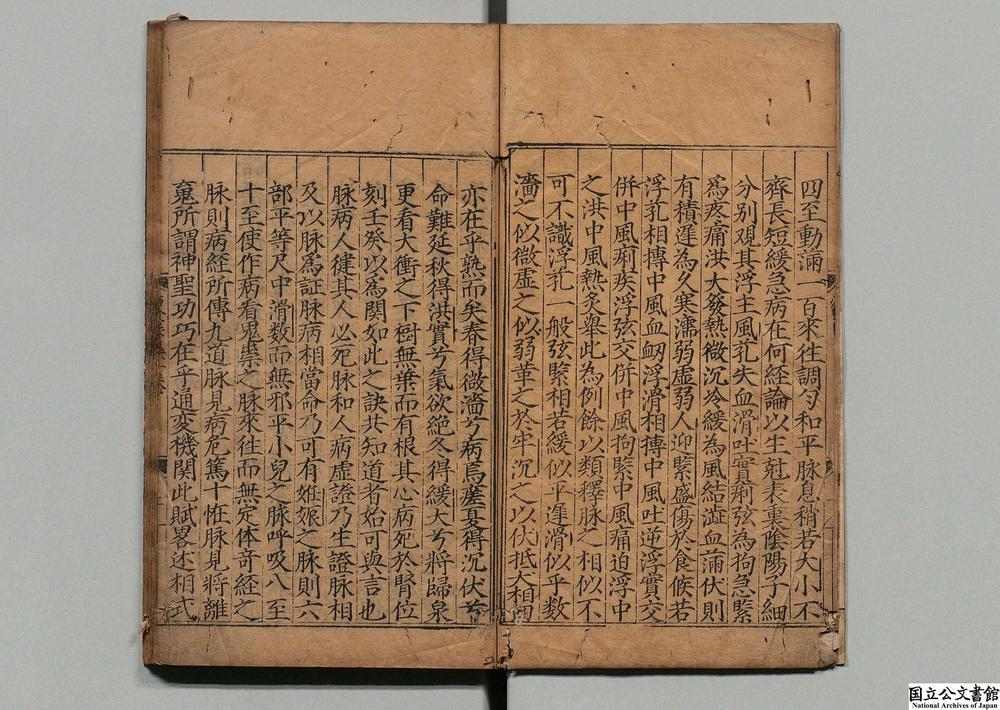 四至動滿一百來徃調勻和平脉息稍若大小不
齊長短緩急病在何経論以生尅表裏陰陽子細
分别观其浮主風孔失血滑吐實痢弦為拘急緊
為疼痛洪大發熱微沉冷緩為風結澁血滿伏則
有積遲為久寒濡弱虛弱人迎緊盛傷於食候若
浮孔相摶中風血衂浮滑相摶中風吐逆浮實交
併中風痢疾浮弦交併中風拘緊中風痛迫浮中
之洪中風熱多舉此為例餘以類釋脉之相似不
可不識浮孔一般弦緊相若緩似乎遲滑似乎数
濇之似微虛之似弱革之於牢沉之以伏抵大相
亦在乎熟而矣春得微濇兮病焉瘥夏得沉伏兮
命難延秋得洪實兮氣欲絶冬得緩大兮將歸泉
更看大衝之下樹無葉而有根其心病死於腎位
刻壬癸以為関如此之訣共知道者始可與言也
脉病人徤其人必死脉和人病虛證乃生證脉相
及以脉為証脉病相當命乃可有姙娠之脉則六
部平等尺中滑数而無邪平小兒之脉呼吸八至
十至使作病看鬼祟之脉來徃而無定体竒經之
脉則病経所傳九道脉見病危篤十恠脉見將離
䰟所謂神聖功巧在乎通変機関此賦畧述相式
国立公文書館
National Archives of Japan